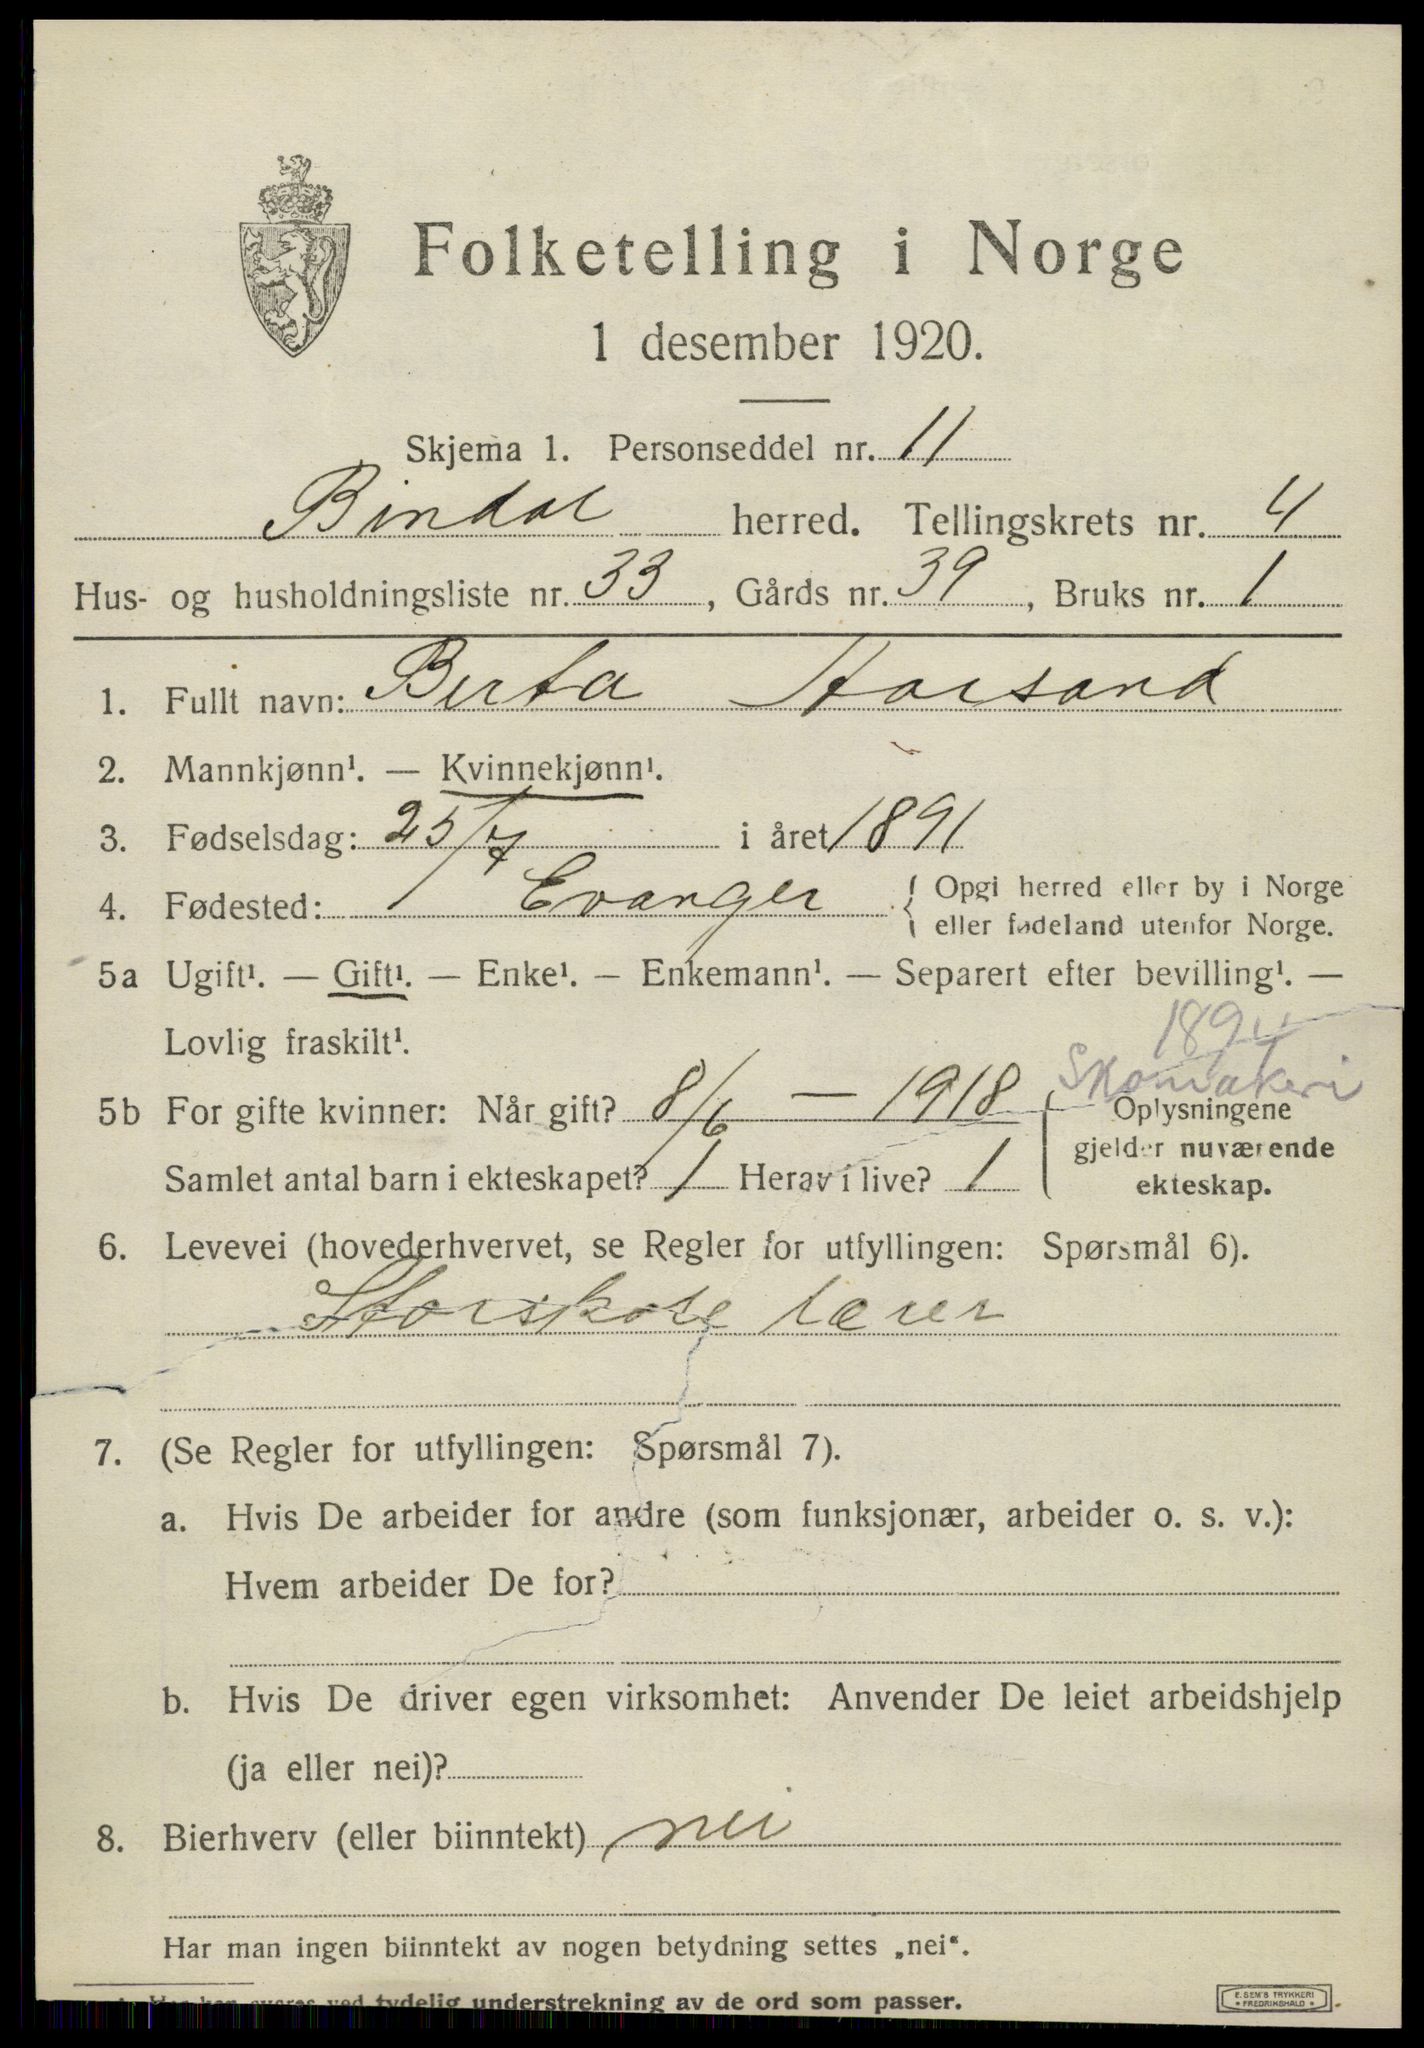 Folketelling i Norge
1 desember 1920.
Skjema 1. Personseddel nr. 11
Bindal herred. Tellingskrets nr. 4
Hus- og husholdningsliste nr. 33, Gårds nr. 39, Bruks nr. 1
1. Fullt navn: Berta Horsand
2. Mannkjønn¹. — Kvinnekjønn¹.
3. Fødselsdag: 25/7 i året 1891
4. Fødested: Evanger { Opgi herred eller by i Norge
eller fødeland utenfor Norge.
5a Ugift¹. — Gift¹. — Enke¹. — Enkemann¹. — Separert efter bevilling¹. —
Lovlig fraskilt¹.
Skomakeri
5b For gifte kvinner: Når gift? 8/6 — 1918 Oplysningene
gjelder nuværende
Samlet antal barn i ekteskapet? 1 Herav i live? 1 ekteskap.
6. Levevei (hovederhvervet, se Regler for utfyllingen: Spørsmål 6).
lærer
7. (Se Regler for utfyllingen: Spørsmål 7).
a. Hvis De arbeider for andre (som funksjonær, arbeider o. s. v.):
Hvem arbeider De for?
b. Hvis De driver egen virksomhet: Anvender De leiet arbeidshjelp
(ja eller nei)?
8. Bierhverv (eller biinntekt) nei
Har man ingen biinntekt av nogen betydning settes „nei“.
tydelig understrekning av de ord som passer.
E. SEM'S TRYKKERI
* FREDRIKSHALD *